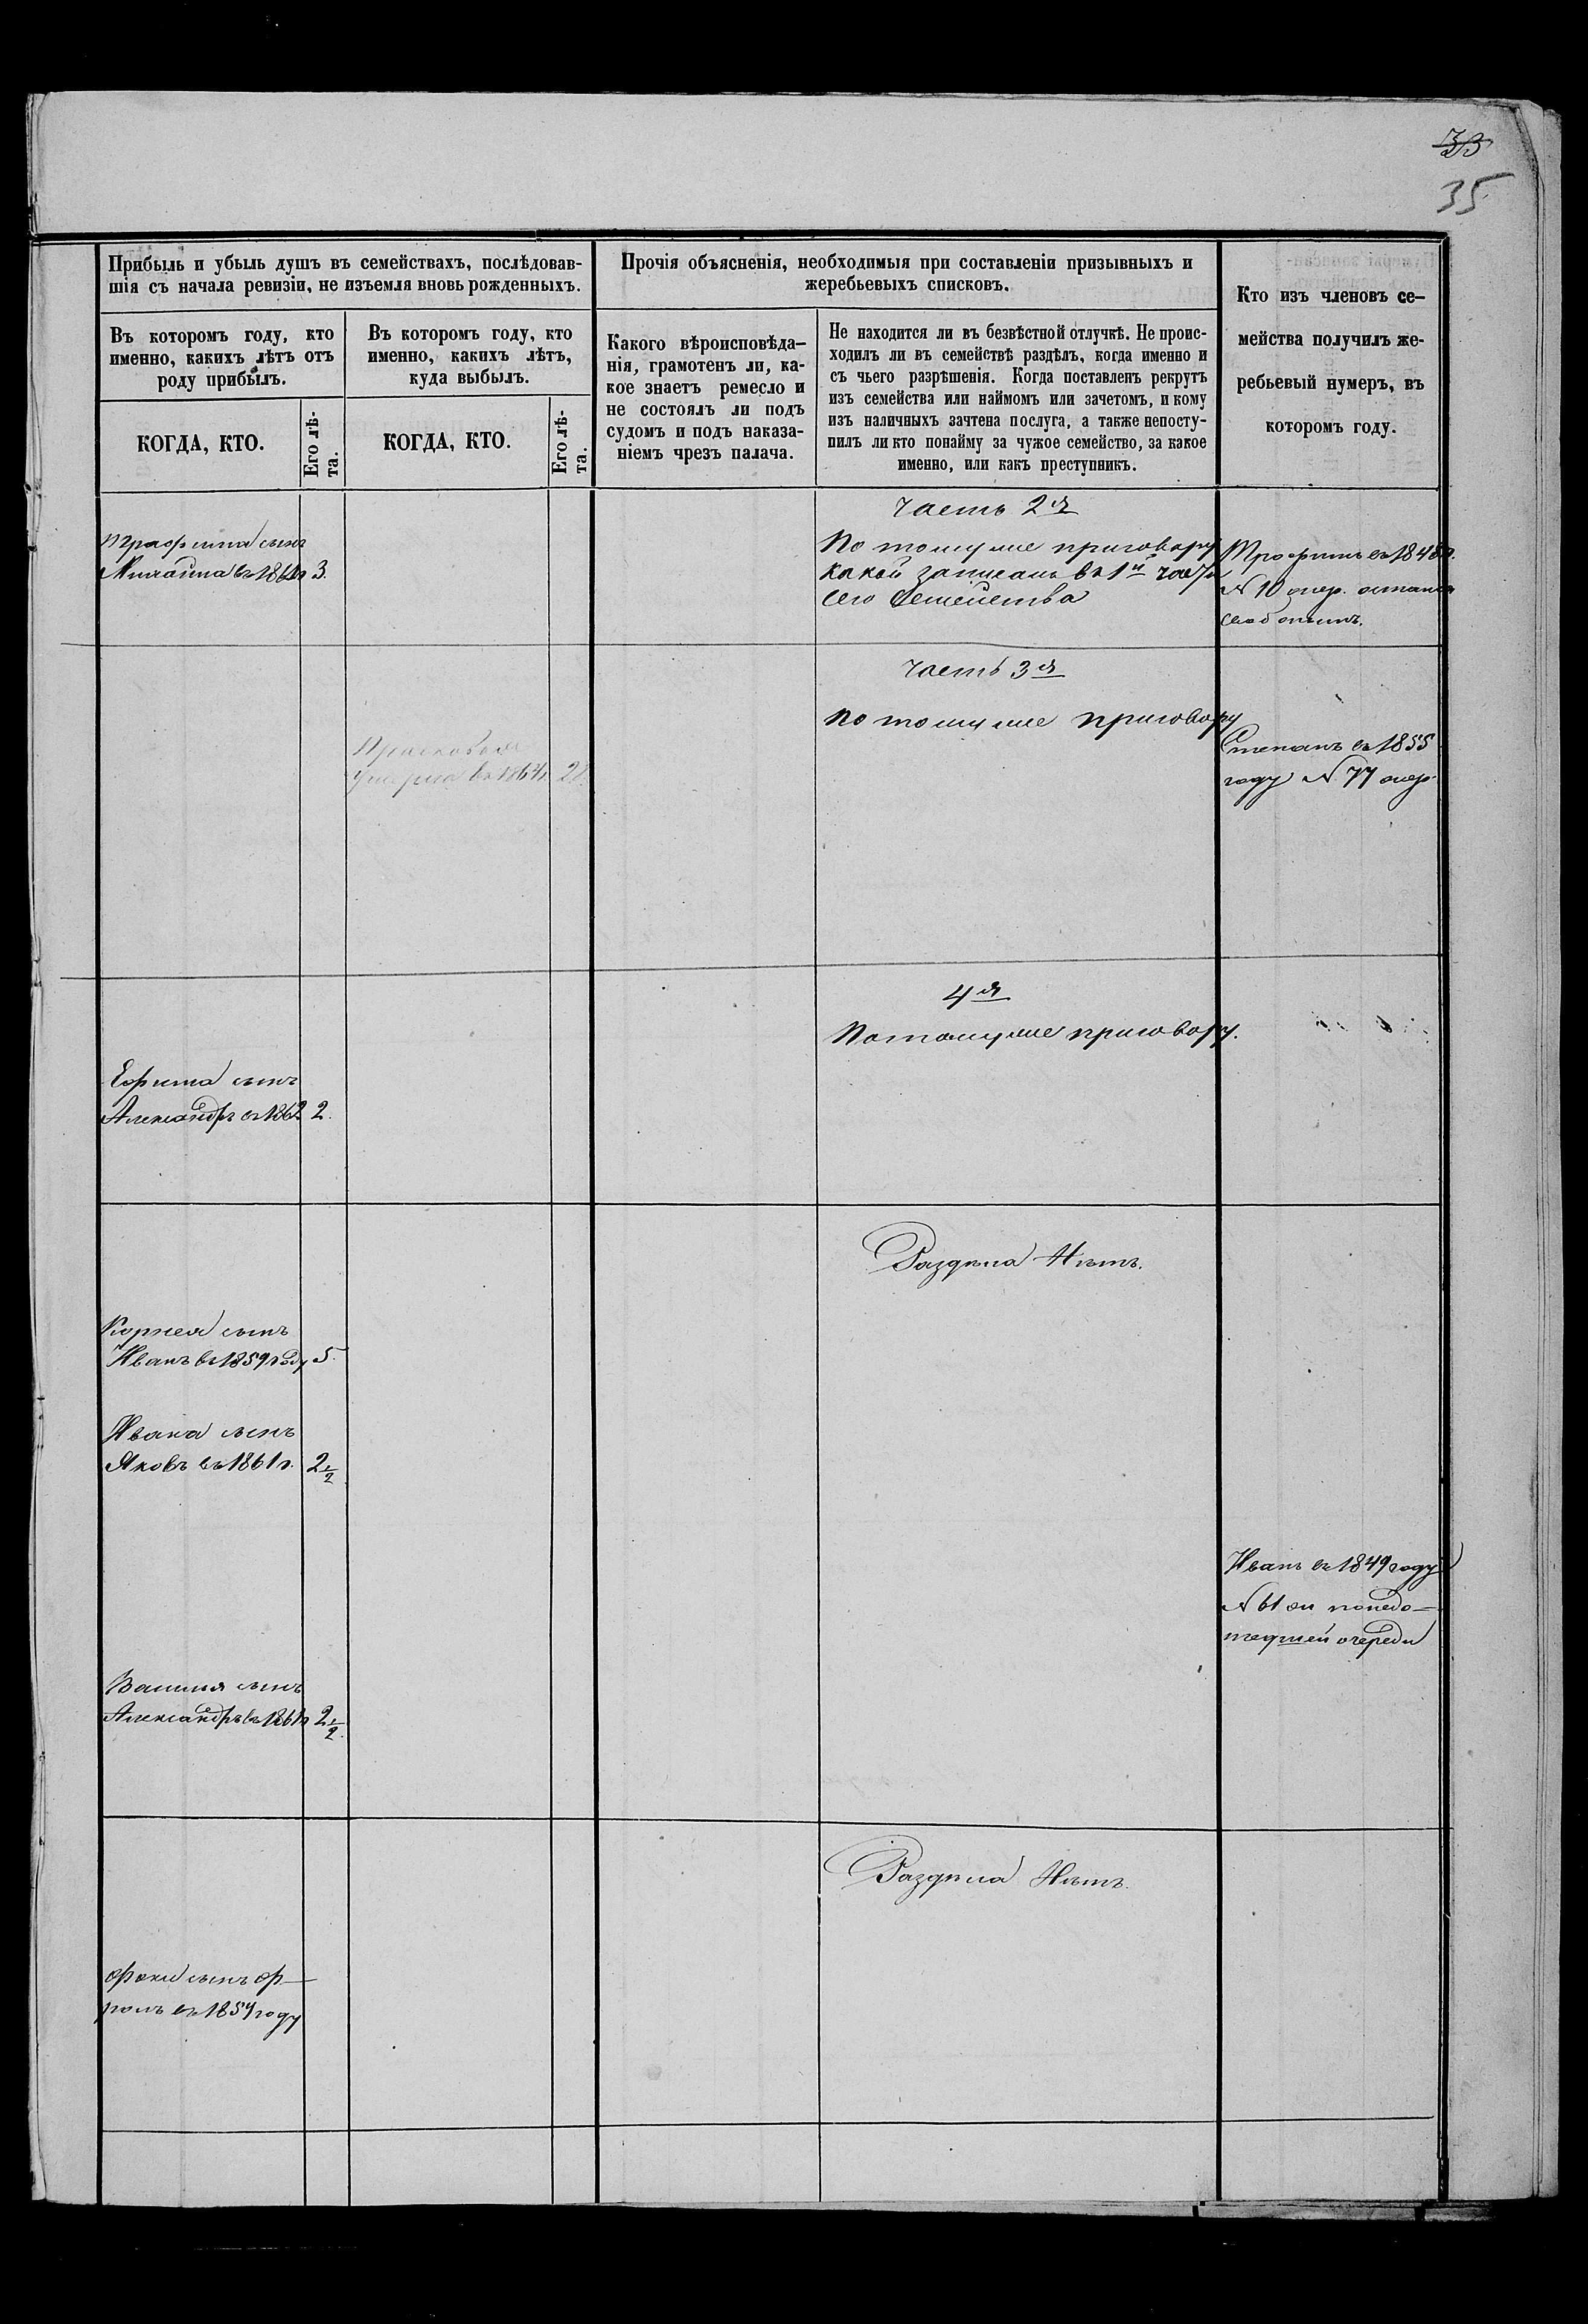 33
35
Прибыль и убыль душъ въ семействахъ, послѣдовав-
шія съ начала ревизіи, не изъемля вновь рожденныхъ.
Въ которомъ году, кто
именно, какихъ лѣтъ отъ
роду прибылъ.
КОГДА, КТО.
Его лѣ-
та.
Въ которомъ году, кто
именно, какихъ лѣтъ,
куда выбылъ.
КОГДА, КТО.
Его лѣ-
та.
Прочія объясненія, необходимыя при составленіи призывныхъ и
жеребьевыхъ списковъ.
Какого вѣроисповѣда-
нія, грамотенъ ли, ка-
кое знаетъ ремесло и
не состоялъ ли подъ
судомъ и подъ наказа-
ніемъ чрезъ палача.
Не находится ли въ безвѣстной отлучкѣ. Не проис-
ходилъ ли въ семействѣ раздѣлъ, когда именно и
съ чьего разрѣшенія. Когда поставленъ рекрутъ
изъ семейства или наймомъ или зачетомъ, и кому
изъ наличныхъ зачтена послуга, а также непосту-
пилъ ли кто понайму за чужое семейство, за какое
именно, или какъ преступникъ.
Кто изъ членовъ се-
мейства получилъ же-
ребьевый нумеръ, въ
которомъ году.
Часть 2я
Трофима сынъ
Михайла въ 1861г 3.
По тому же приговору
какой записанъ въ 1й части
сего Семейства
Трофимъ въ 1848г.
N 10 очер. остался
свободнымъ.
Часть 3я
По тому же приговору
Прасковья
Умерла въ 1864г. 28
Степанъ въ 1855
году N 77 очер.
4я
По тому же приговору.
Ефима сынъ
Александръ въ 1862 2.
Раздѣла Нѣтъ.
Корнея сынъ
Иванъ въ 1859 году 5.
Ивана сынъ
Яковъ въ 1861г. 2 1/2
Иванъ въ 1849 году
N 61 он понедо-
шедшей очереди
Василья сынъ
Александръ въ 1861г 2 1/2.
Раздѣла Нѣтъ.
Фоки сынъ Ф-
ролъ въ 1854 году